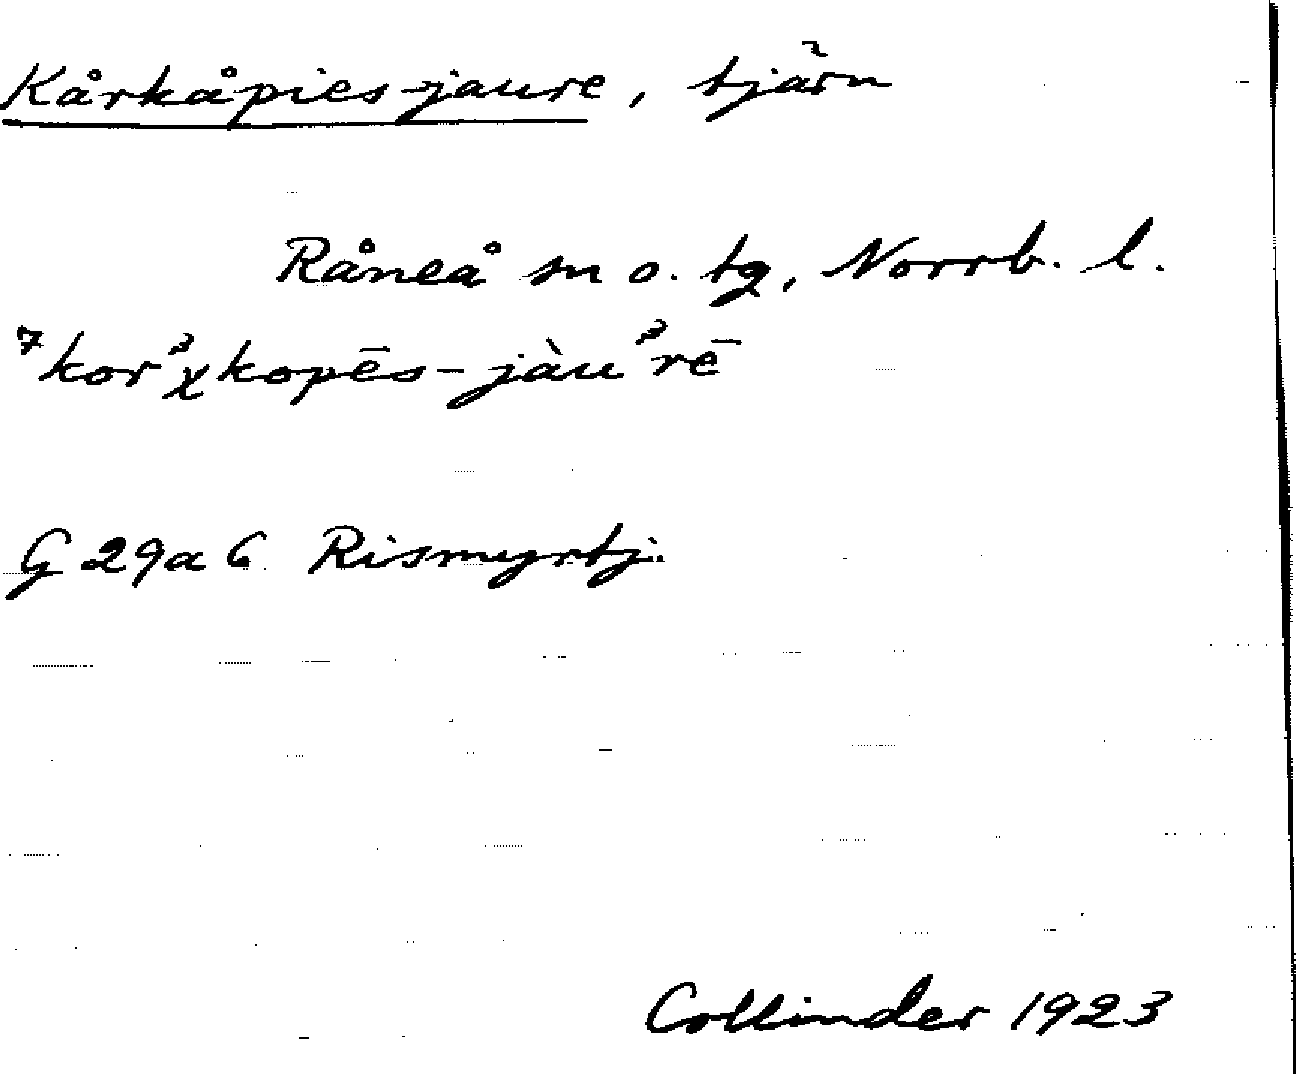 Kårkåpies-jaure, tjärn
Råneå sn o. tg, Norrb. l.
⁷korᵌχkopēs-jàuᵌrē
G 29a C Rismyrtj.
Collinder 1923